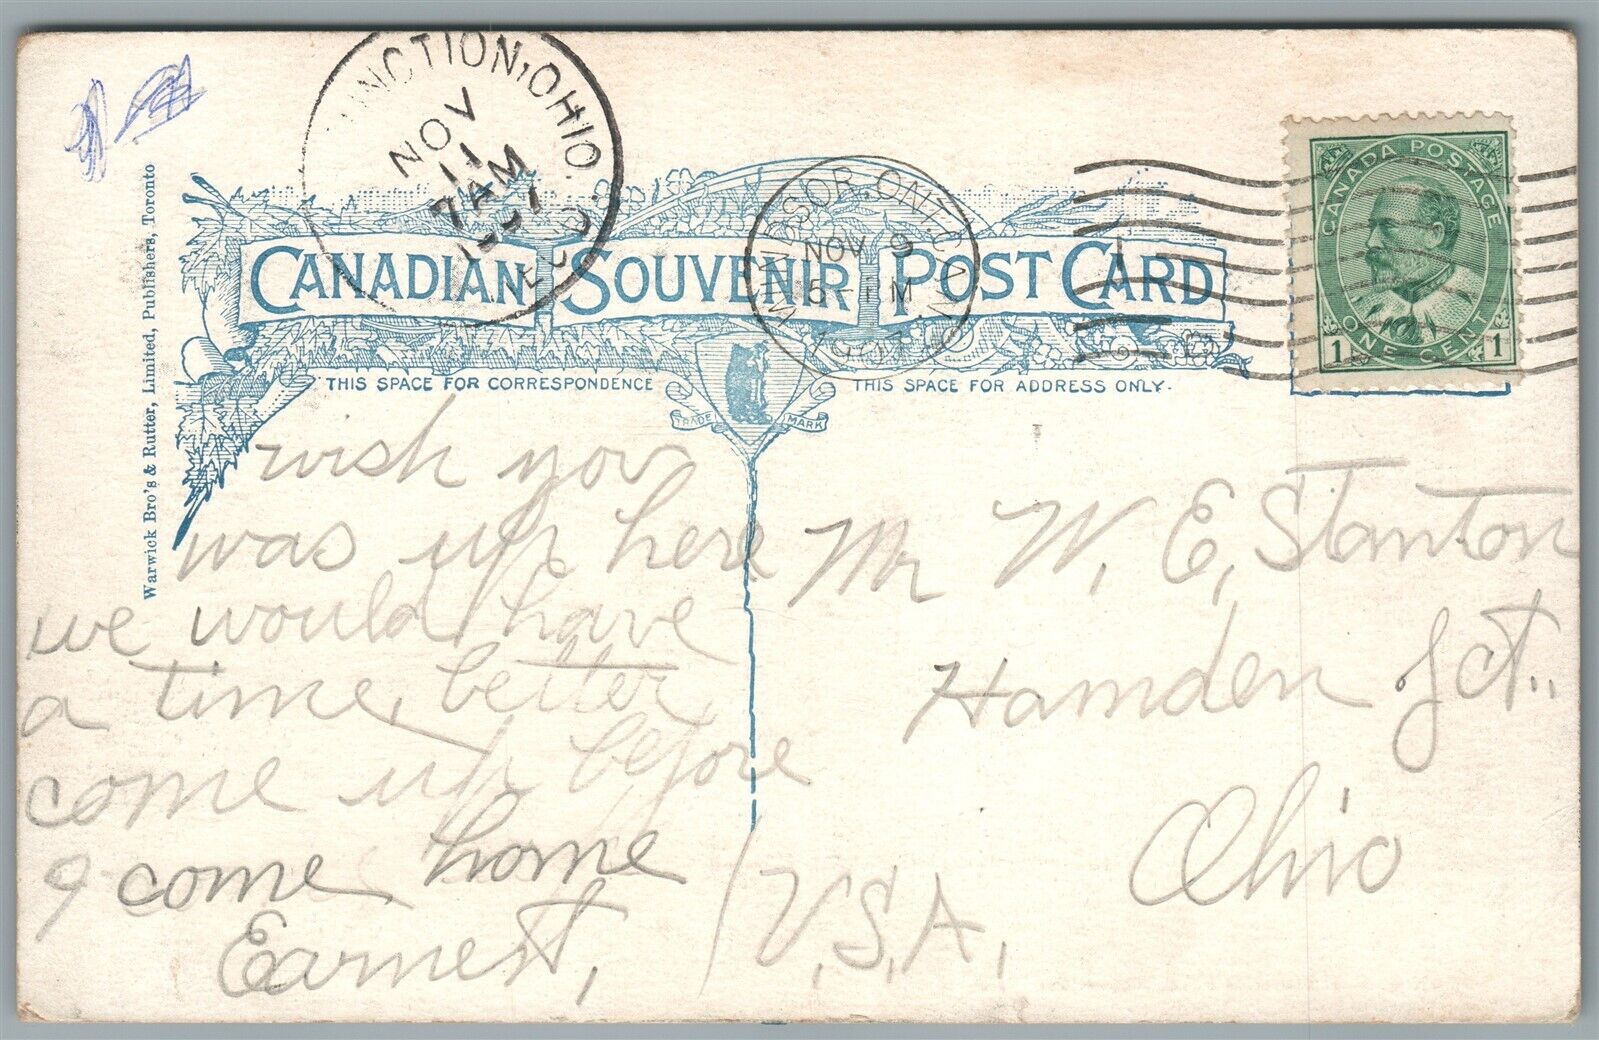 NCTION, OHIO.
NOV
11
7 AM
REC'D.
WINDSOR, ONT. CAN.
NOV 9
5 - PM
1907
CANADA POSTAGE
1 ONE CENT 1
CANADIAN SOUVENIR POST CARD
THIS SPACE FOR CORRESPONDENCE
THIS SPACE FOR ADDRESS ONLY.
TRADE MARK
Warwick Bro's & Rutter, Limited, Publishers, Toronto
wish you
was up here
we would have
a time, better
come up before
I come home
Earnest,
Mr W. E. Stanton
Hamden Jct.,
Ohio
U.S.A.